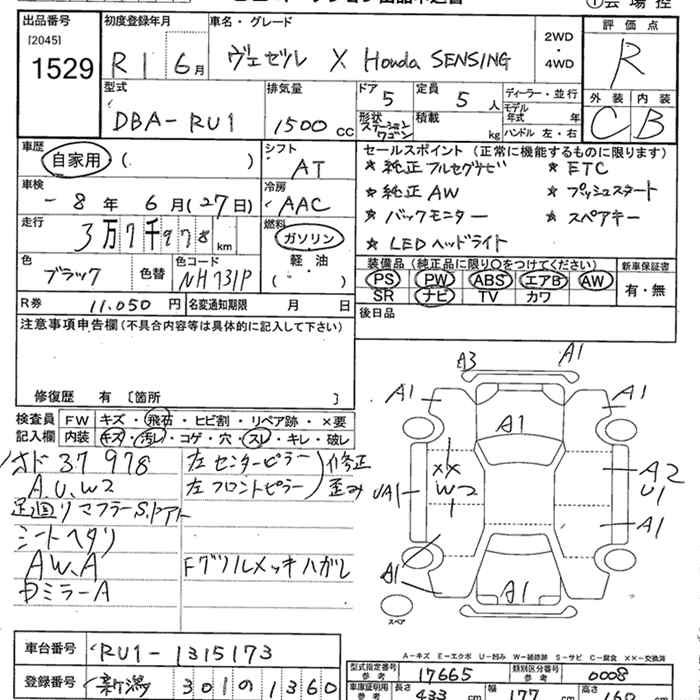 出品番号 初度登録年月 車名・グレード
[2045] 1529
R1 6月 ヴェゼル X Honda SENSING
2WD・4WD
評価点 R
外装 内装
C B
型式 DBA-RU1
排気量 1500 CC
ドア 5 定員 5 人
形状 ステーションワゴン 積載 kg
ディーラー・並行
モデル年式 年
ハンドル 左・右
車歴 自家用 ( )
シフト AT
車検 8年 6月 (27日)
冷房 AAC
走行 3万7千978 km
燃料 ガソリン 軽・油 ( )
色 ブラック 色替 色コード NH731P
R券 11,050 円 名変通知期限 月 日
セールスポイント (正常に機能するものに限ります)
★純正フルセグナビ ★ETC
★純正AW ★プッシュスタート
★バックモニター ★スペアキー
★LEDヘッドライト
装備品 (純正品に限り○をつけてください) 新車保証書
PS PW ABS エアB AW 有・無
SR ナビ TV カワ
後日品
注意事項申告欄(不具合内容等は具体的に記入して下さい)
修復歴 有 〔箇所 〕
検査員記入欄 FW キズ・飛石・ヒビ割・リペア跡・×要
内装 キズ・汚レ・コゲ・穴・スレ・キレ・破レ
37 978 左センターピラー 修正
A.U.W2 左フロントピラー 歪み
足回リマフラーS.
シートヘタリ
AW.A Fグリルメッキハガレ
ミラーA
A3 A1
A1 A1 A1
XX W2 A2 U1
UA1 A1
A1 A1
スペア
A-キズ E-エクボ U-凹み W-補修跡 S-サビ C-腐食 ××-交換済
車台番号 RU1-1315173
登録番号 新潟 301の1360
型式指定番号 参考 17665 類別区分番号 参考 0008
車庫証明用 参考 長さ 433 cm 幅 177 cm 高さ 160 cm